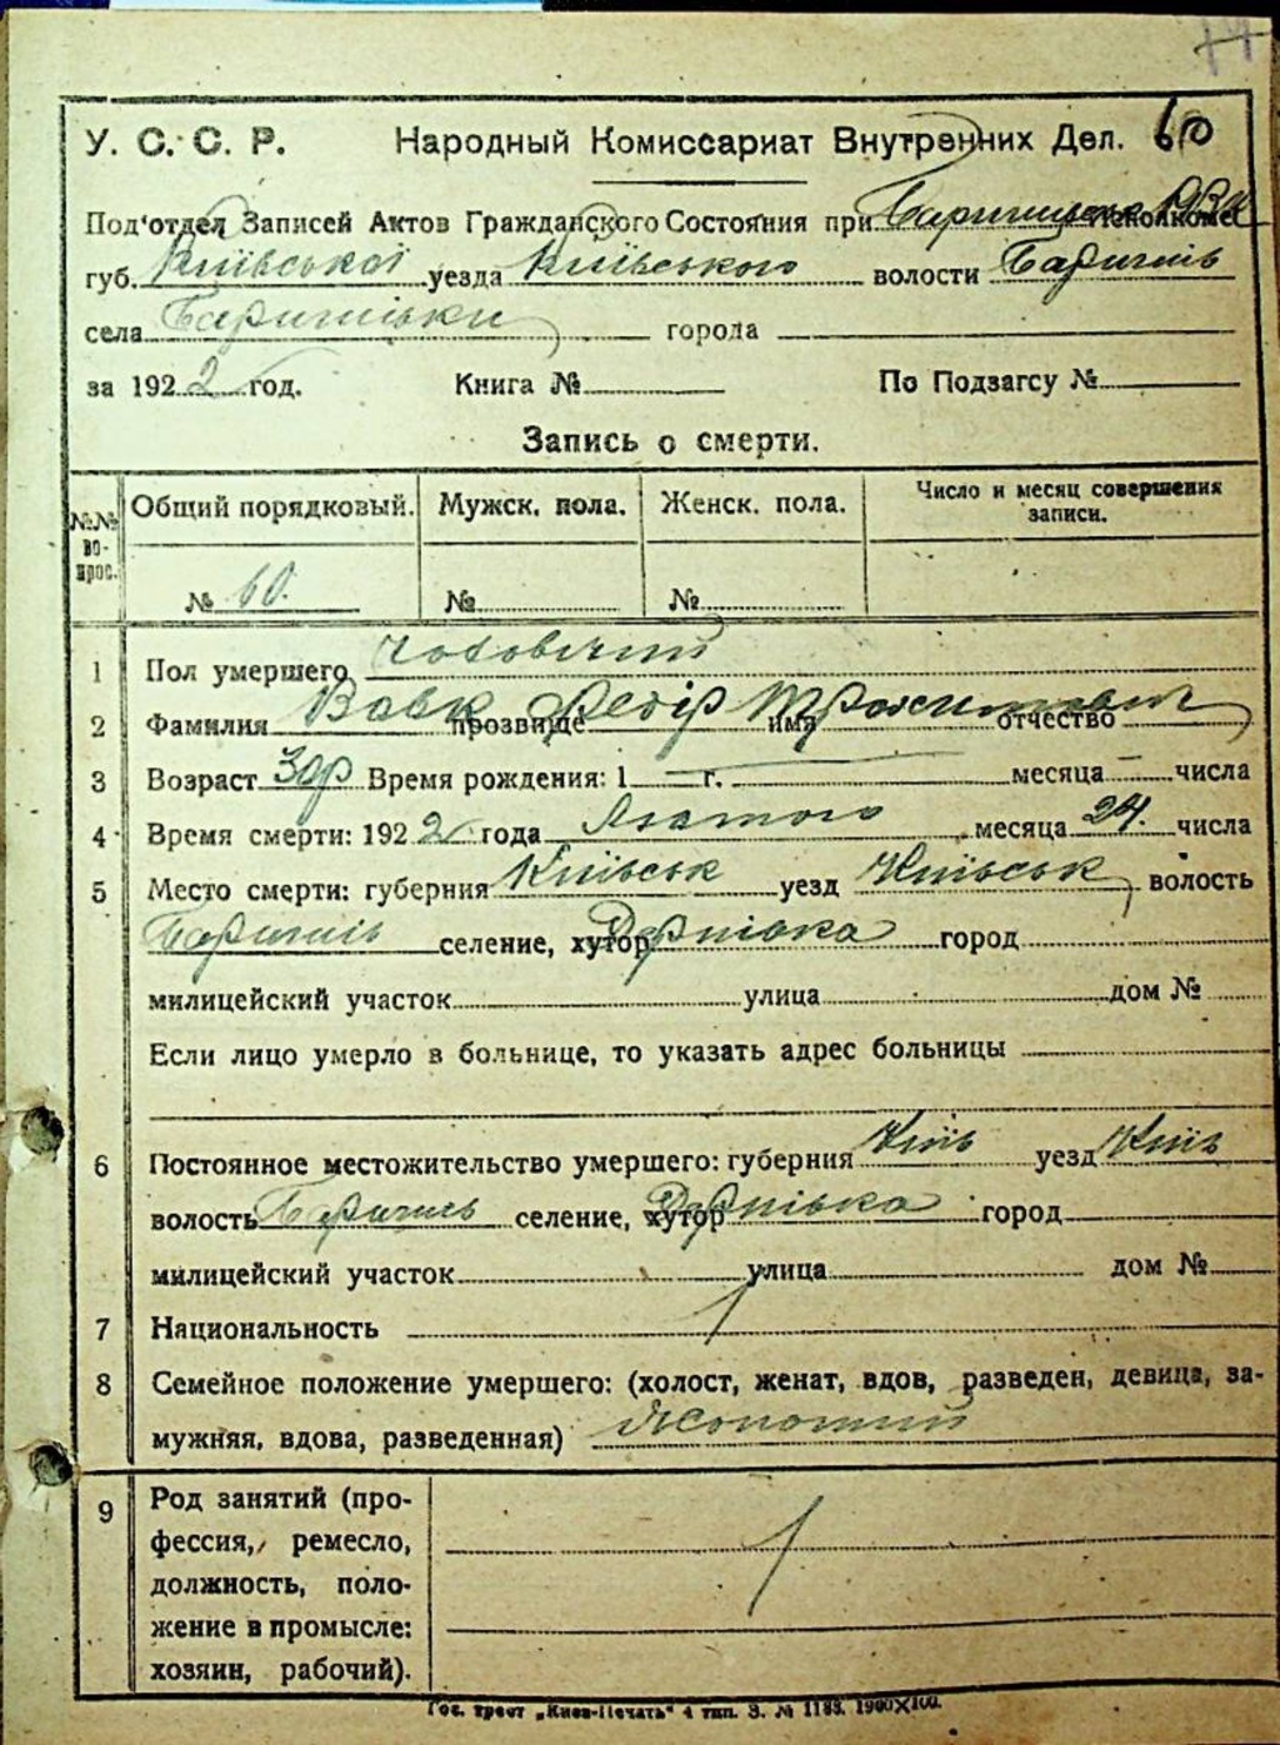 У. С. С. Р. Народный Комиссариат Внутренних Дел. 60
Под'отдел Записей Актов Гражданского Состояния при Исполкоме
губ. Київської уезда Київського волости Баришів
села Баришівки города
за 1922 год. Книга № По Подзагсу №
Запись о смерти.
№№ вопрос. Общий порядковый. Мужск. пола. Женск. пола. Число и месяц совершения записи.
№ 60. № №
1 Пол умершего чоловічий
2 Фамилия Вовк прозвище Федір имя отчество
3 Возраст 30р Время рождения: 1 г. месяца числа
4 Время смерти: 1922 года Лютого месяца 24. числа
5 Место смерти: губерния Київськ уезд Київськ волость
Баришів селение, хутор Дернівка город
милицейский участок улица дом №
Если лицо умерло в больнице, то указать адрес больницы
6 Постоянное местожительство умершего: губерния Київ уезд Київ
волость Баришів селение, хутор Дернівка город
милицейский участок улица дом №
7 Национальность
8 Семейное положение умершего: (холост, женат, вдов, разведен, девица, за-
мужняя, вдова, разведенная) Жонатий
9 Род занятий (про-
фессия, ремесло,
должность, поло-
жение в промысле:
хозяин, рабочий).
Гос. трест „Киев-Печать" 4 тип. З. № 1183. 1900X100.